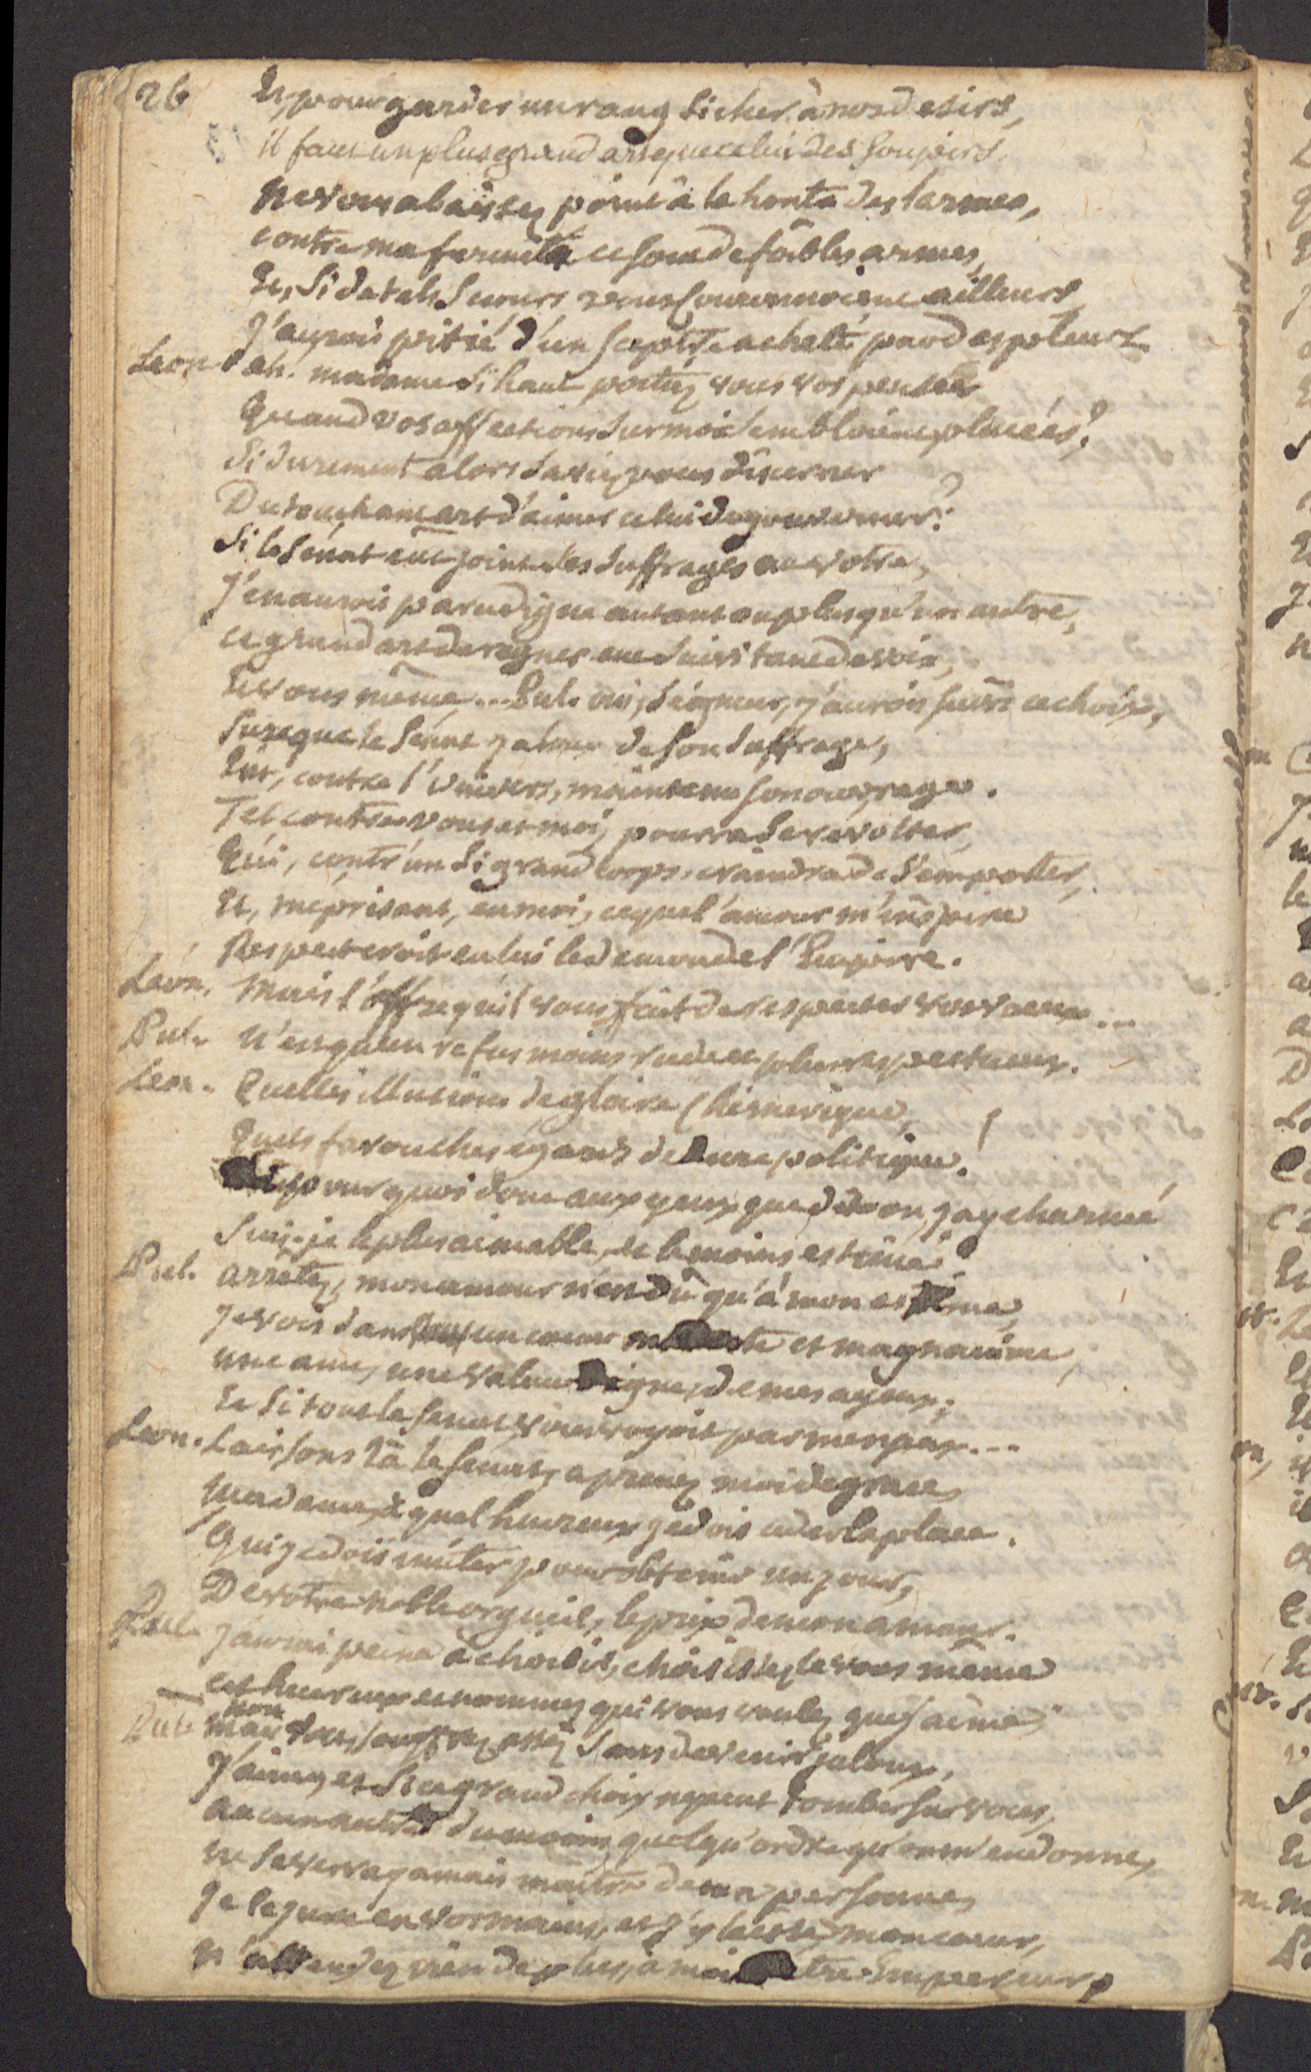 26 Et, pour garder un rang si cher à nos desirs,
il faut un plus grand art que celui des soupirs.
ne vous abaissez point à la honte des larmes,
contre ma fermeté ce sont de foibles armes,
Et, si de tels secours vous couronnoient ailleurs
J'aurois pitié d'un sceptre acheté par des pleurs.
Leon ah. madame si haut portiez vous vos pensées
Quand vos affections sur moi sembloient placées?
Si durement alors saviez vous discerner
Du touchant art d'aimer celui de gouverner?
Si le sénat eut joint ses suffrages au votre,
J'en aurois paru digne autant ou plus qu'un autre,
ce grand art de regner eut suivi tant de voix,
Et vous même... Pul. oui, seigneur, j'aurois suivi ce choix,
sure que le sénat jaloux de son suffrage,
Eut, contre l'univers, maintenu son ouvrage.
Tel contre vous et moi, pourra se revolter,
Qui, contr'un si grand corps, craindra de s'emporter,
Et, meprisant, en moi, ce que l'amour m'inspire
Respecteroit en lui le demon de l'Empire.
Léon. Mais l'offre qu'il vous fait de respecter vos voeux...
Pul. N'est qu'un refus moins rude et plus respectueux.
Leon. Quelles illusions de gloire chimerique,
Quels farouches egards de dure politique!
pourquoi donc aux yeux que j'ay charmé
Suis-je le plus aimable, et le moins estimé?
Pul. arretez, mon amour n'est dû qu'à mon estime,
Je vois dans vous un coeur et magnanime,
une ame, une valeur digne, de mes ayeux;
Et si tout le senat vous voyoit par mes yeux...
Leon. Laissons là le senat, aprenez moi de grace,
Madame, à quel heureux je dois ceder la place.
Qui je dois imiter pour obtenir un jour,
De votre noble orgueil, le prix de mon amour.
Pul. J'aurai peine à choisir, choisissez le vous même
cet heureux et nommez qui vous voulez que j'aime
Pul. non mais vous souffrez assez sans devenir jaloux,
J'aime, et si ce grand choix ne peut tomber sur vous,
aucun autre du moins, quelqu'ordre qu'on m'en donne,
ne se verra jamais maitre de ma personne,
Je le jure en vos mains, et j'y laisse mon coeur,
N'attendez rien de plus, à moins d'etre Empereur,